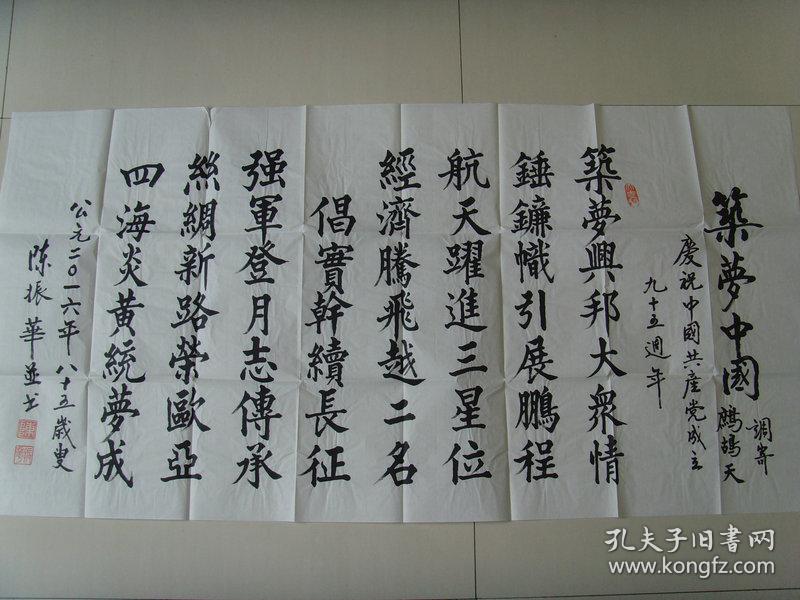 築夢中國
調寄
鷓鴣天
慶祝中國共産党成立
九十五週年
築夢興邦大衆情
錘鐮幟引展鵬程
航天躍進三星位
經濟騰飛越二名
倡實幹續長征
强軍登月志傳承
絲綢新路榮歐亞
四海炎黃統夢成
公元二〇一六年八十五歲叟
陈振華並书
孔夫子旧書网
kongfz.com